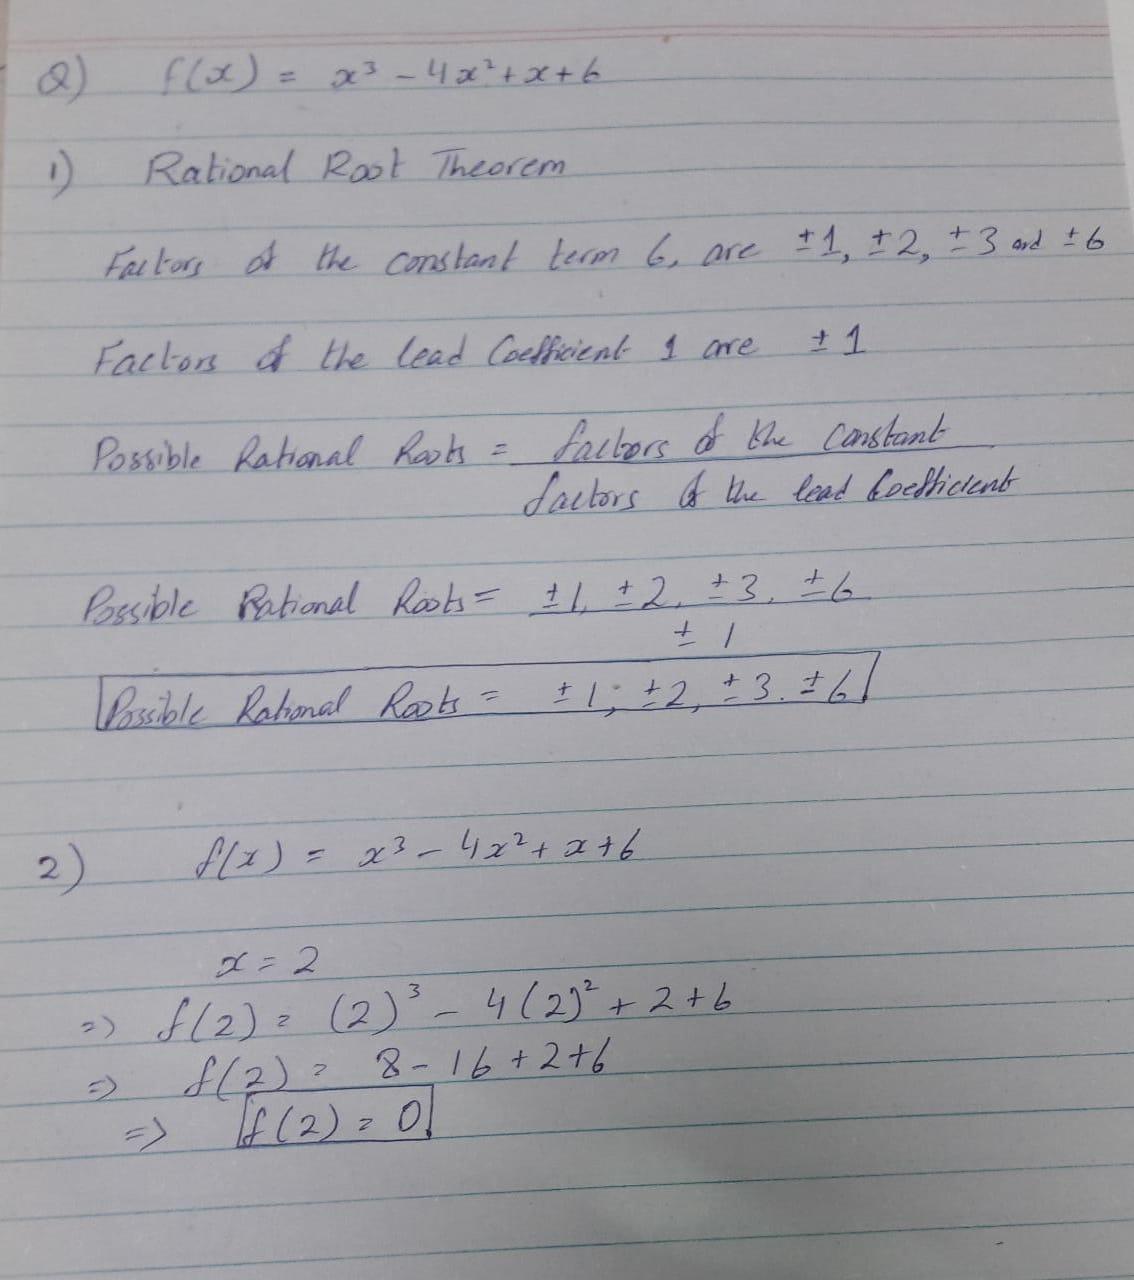 Q) f(x) = x³ - 4x² + x + 6
1) Rational Root Theorem
Factors of the constant term 6, are ±1, ±2, ±3 and ±6
Factors of the lead Coefficient 1 are ±1
Possible Rational Roots = factors of the constant
factors of the lead Coefficient
Possible Rational Roots = ±1, ±2, ±3, ±6
± 1
Possible Rational Roots = ±1, ±2, ±3. ±6
2) f(x) = x³ - 4x² + x + 6
x = 2
=> f(2) = (2)³ - 4(2)² + 2 + 6
=> f(2) = 8 - 16 + 2 + 6
=> f(2) = 0